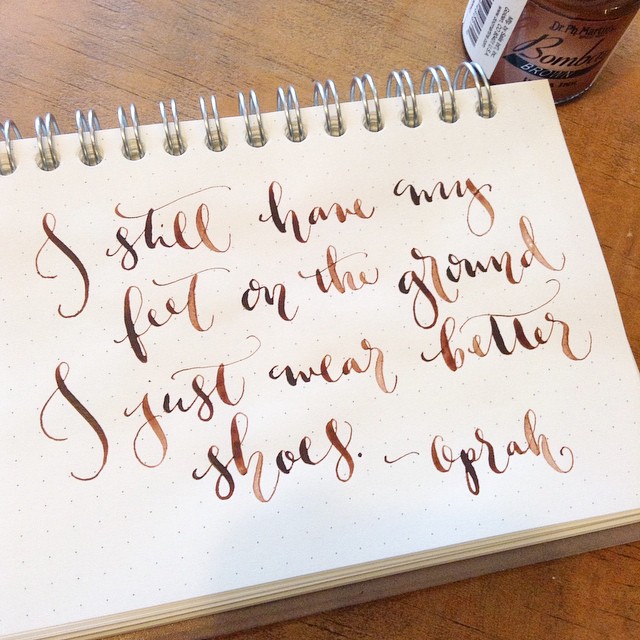 I still have my
feet on the ground
I just wear better
shoes. - Oprah
Dr. Ph. Martin's
Bombay